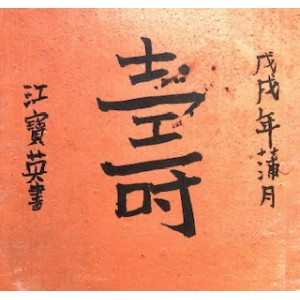 戊戌年蒲月
壽
江寶英書